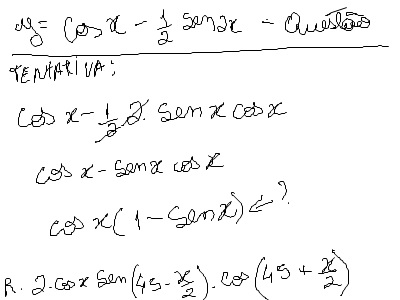 y = cos x - 1/2 sen 2x - Questão
TENTATIVA:
cos x - 1/2 2. sen x cos x
cos x - sen x cos x
cos x (1 - sen x) ⇐ ?
R. 2. cos x sen (45 - x/2). cos (45 + x/2)